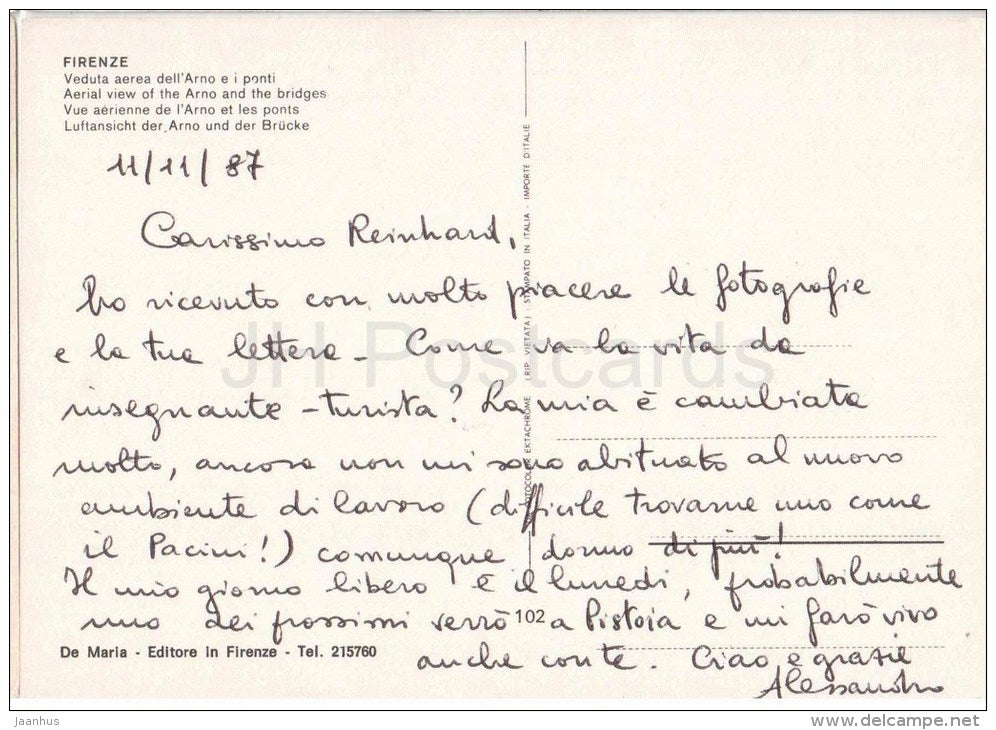 FIRENZE
Veduta aerea dell'Arno e i ponti
Aerial view of the Arno and the bridges
Vue aérienne de l'Arno et les ponts
Luftansicht der Arno und der Brücke
11/11/87
Carissimo Reinhard,
ho ricevuto con molto piacere le fotografie
e la tua lettera - Come va la vita da
insegnante - turista? La mia è cambiata
molto, ancora non mi sono abituato al nuovo
ambiente di lavoro (difficile trovarne uno come
il Pacini!) comunque dormo di più!
Il mio giorno libero è il lunedì, probabilmente
uno dei prossimi verrò a Pistoia e mi farò vivo
anche con te. Ciao e grazie
Alessandro
102
De Maria - Editore in Firenze - Tel. 215760
FOTOCOLOR EKTACHROME (RIP. VIETATA) - STAMPATO IN ITALIA - IMPORTE D'ITALIE
JH Postcards
jaanhus
delcampe.net